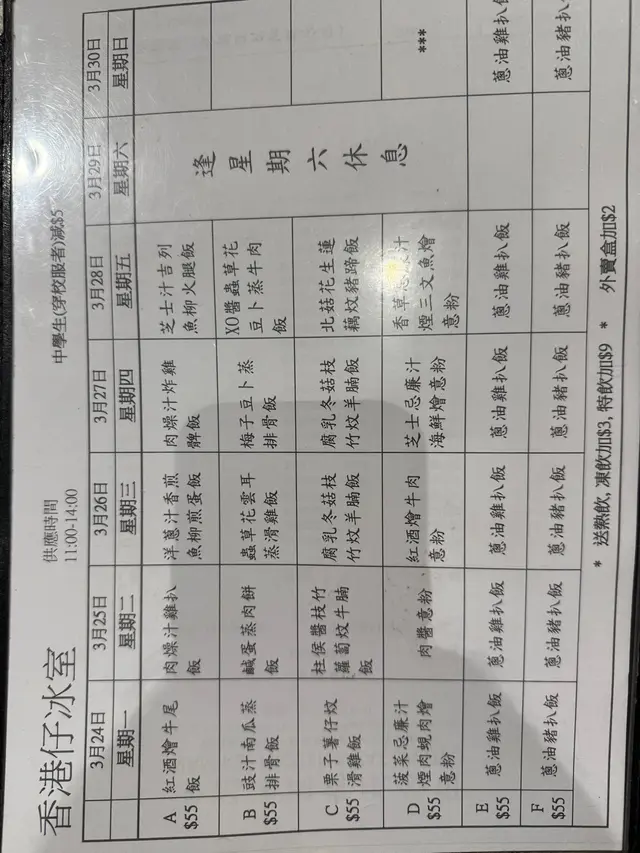 香港仔冰室
供應時間
11:00-14:00
中學生(穿校服者)減$5
3月24日 3月25日 3月26日 3月27日 3月28日 3月29日 3月30日
星期一 星期二 星期三 星期四 星期五 星期六 星期日
A
$55
紅酒燴牛尾
飯
肉燥汁雞扒
飯
洋蔥汁香煎
魚柳煎蛋飯
肉燥汁炸雞
髀飯
芝士汁吉列
魚柳火腿飯
B
$55
豉汁南瓜蒸
排骨飯
鹹蛋蒸肉餅
飯
蟲草花雲耳
蒸滑雞飯
梅子豆卜蒸
排骨飯
XO醬蟲草花
豆卜蒸牛肉
飯
C
$55
栗子薯仔炆
滑雞飯
柱侯醬枝竹
蘿蔔炆牛腩
飯
腐乳冬菇枝
竹炆羊腩飯
腐乳冬菇枝
竹炆羊腩飯
北菇花生蓮
藕炆豬蹄飯
D
$55
菠菜忌廉汁
煙肉蜆肉燴
意粉
肉醬意粉
紅酒燴牛肉
意粉
芝士忌廉汁
海鮮燴意粉
香草忌廉汁
煙三文魚燴
意粉
***
逢星期六休息
E
$55
蔥油雞扒飯
蔥油雞扒飯
蔥油雞扒飯
蔥油雞扒飯
蔥油雞扒飯
蔥油雞扒飯
F
$55
蔥油豬扒飯
蔥油豬扒飯
蔥油豬扒飯
蔥油豬扒飯
蔥油豬扒飯
蔥油豬扒飯
* 送熱飲, 凍飲加$3, 特飲加$9 * 外賣盒加$2